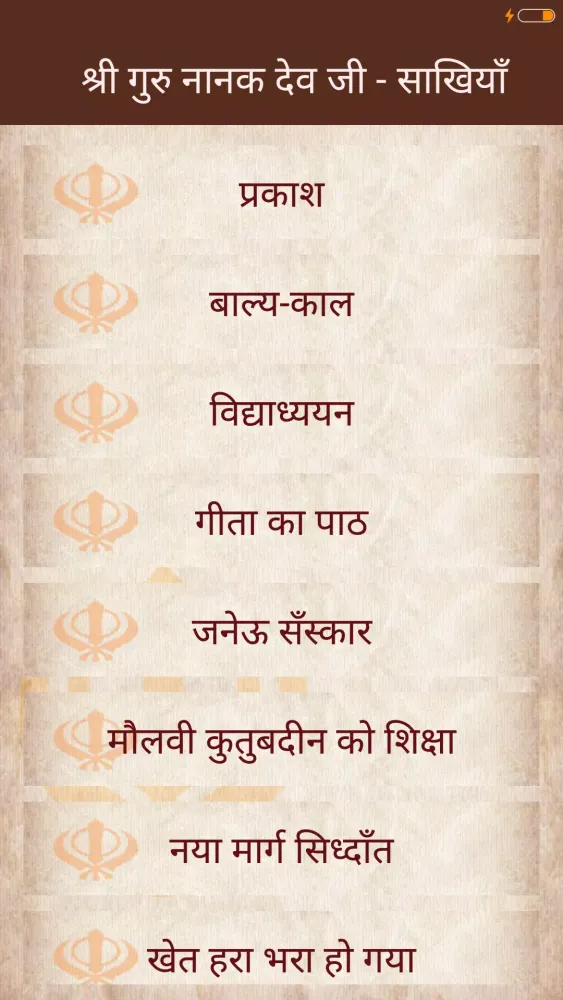 श्री गुरु नानक देव जी - साखियाँ
प्रकाश
बाल्य-काल
विद्याध्ययन
गीता का पाठ
जनेऊ सँस्कार
मौलवी कुतुबदीन को शिक्षा
नया मार्ग सिध्दाँत
खेत हरा भरा हो गया